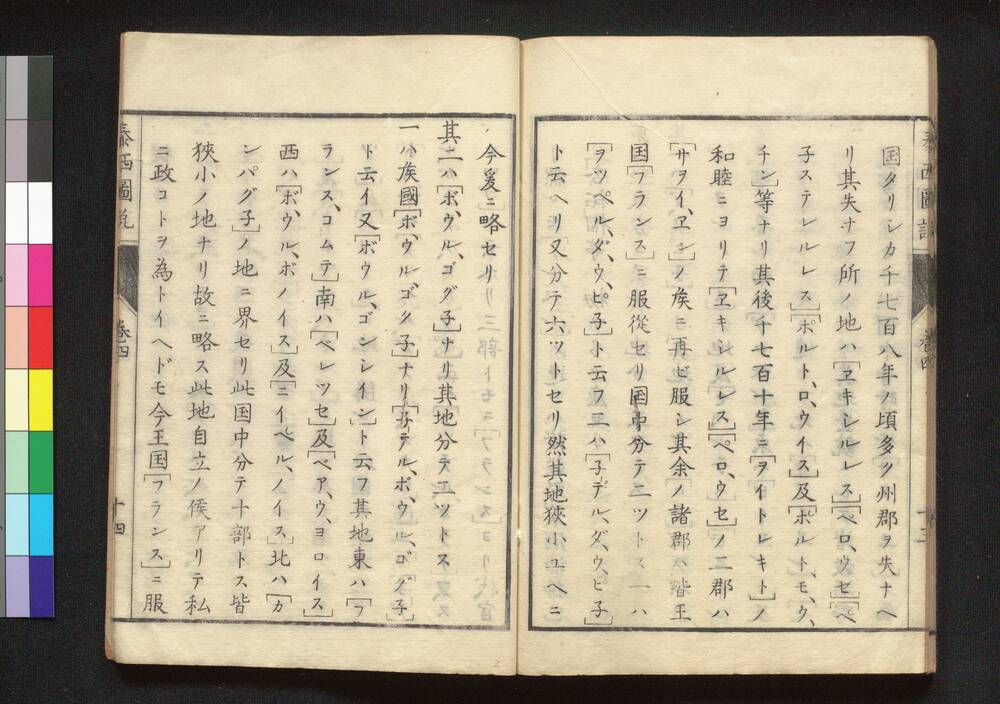 国タリシカ千七百八年ノ頃多ク州郡ヲ失ナヘ
リ其失ナフ所ノ地ハ[ヱキシルレス][ペロ、ウセ][ペ
子ステレルレス][ポルト、ロウイス]及[ポルト、モ、ウ、
チン]等ナリ其後千七百十年ニ[ヲイトレキト]ノ
和睦ニヨリテ[ヱキシルレス][ペロ、ウセ]ノ二郡ハ
[サヲイ、ヱン]ノ矦ニ再ビ服シ其余ノ諸郡ハ皆王
国[フランス]ニ服從セリ国中分テ二ツトス一ハ
[ヲツペル、ダ、ウ、ピ子]ト云フ二ハ[子デル、ダ、ウ、ピ子]
ト云ヘリ又分テ六ツトセリ然其地狹小ユヘニ
泰西圖説
巻四
十三
今爰ニ略セリ
其二ハ[ボ、ウル、ゴグ子]ナリ其地分テ二ツトス
一ハ矦國[ボ、ウルゴク子]ナリ[子テル、ボ、ウル、ゴグ子]
ト云イ又[ボウル、ゴンレイン]ト云フ其地東ハ[フ
ランス、コムテ]南ハ[ベレツセ]及[ベア、ウ、ヨロイス]
西ハ[ボ、ウル、ボノイス]及[ニイベル、ノイス]北ハ[カ
ンパグ子]ノ地ニ界セリ此国中分テ十部トス皆
狹小ノ地ナリ故ニ略ス此地自立ノ侯アリテ私
ニ政コトヲ為トイヘドモ今王国[フランス]ニ服
泰西圖説
巻四
十四